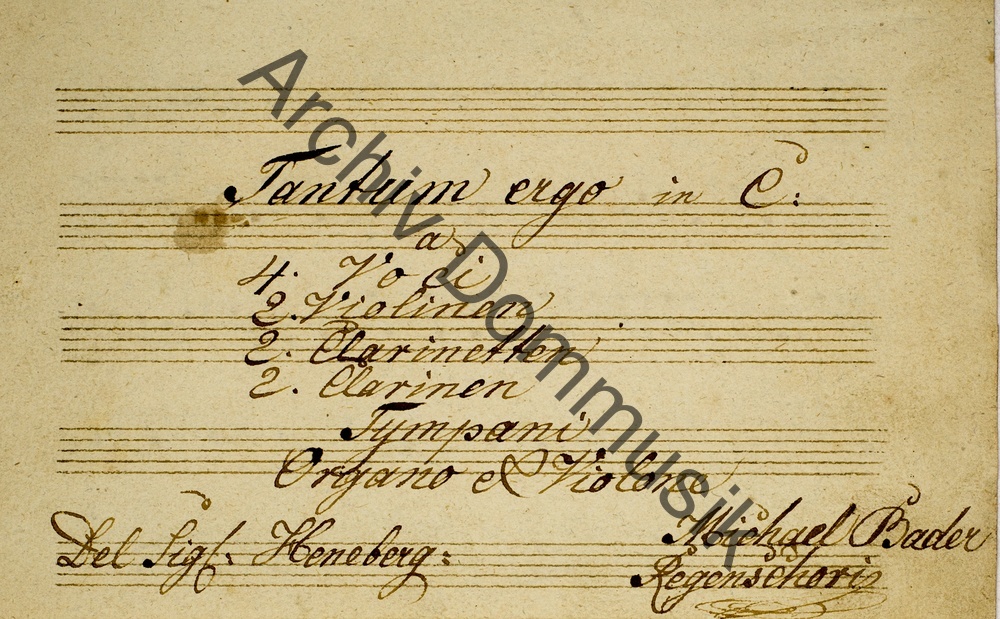 Tantum ergo in C:
a
4. Voci
2. Violinen
2. Clarinetten
2. Clarinen
Tympani
Organo et Violone
Del Sigl: Heneberg:
Michael Bader
Regenschori
Archiv Dommusik